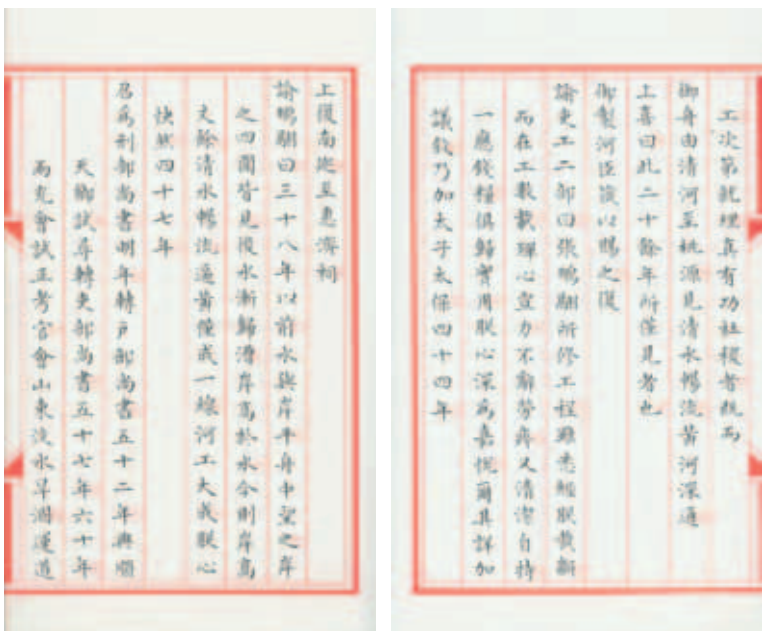 工次第就理真有功社稷者既而
御舟由清河至桃源見清水暢流黃河深通
上喜曰此二十餘年所僅見者也
御製河臣箴以賜之復
諭吏工二部曰張鵬翮所修工程雖悉經朕裁斷
而在工數載殫心宣力不辭勞瘁又清潔自持
一應錢糧俱歸實用朕心深為嘉悅爾其詳加
議敘乃加太子太保四十四年
上復南巡至惠濟祠
諭鵬翮曰三十八年以前水與岸平舟中望之岸
之四圍皆見後水漸歸漕岸高於水今則岸高
丈餘清水暢流逼黃僅成一線河工大成朕心
快然四十七年
召為刑部尚書明年轉戶部尚書五十二年典順
天鄉試尋轉吏部尚書五十七年六十年
兩充會試正考官會山東汶水旱涸運道